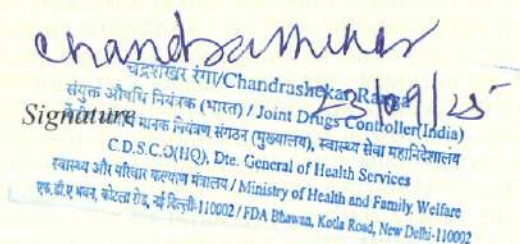 Chandrashekar
23/09/25
चंद्रशेखर रंगा/Chandrashekar Ranga
संयुक्त औषधि नियंत्रक (भारत) / Joint Drugs Controller(India)
Signature मानक नियंत्रण संगठन (मुख्यालय), स्वास्थ्य सेवा महानिदेशालय
C.D.S.C.O(HQ), Dte. General of Health Services
स्वास्थ्य और परिवार कल्याण मंत्रालय / Ministry of Health and Family Welfare
एफ.डी.ए भवन, कोटला रोड, नई दिल्ली-110002 / FDA Bhawan, Kotla Road, New Delhi-110002